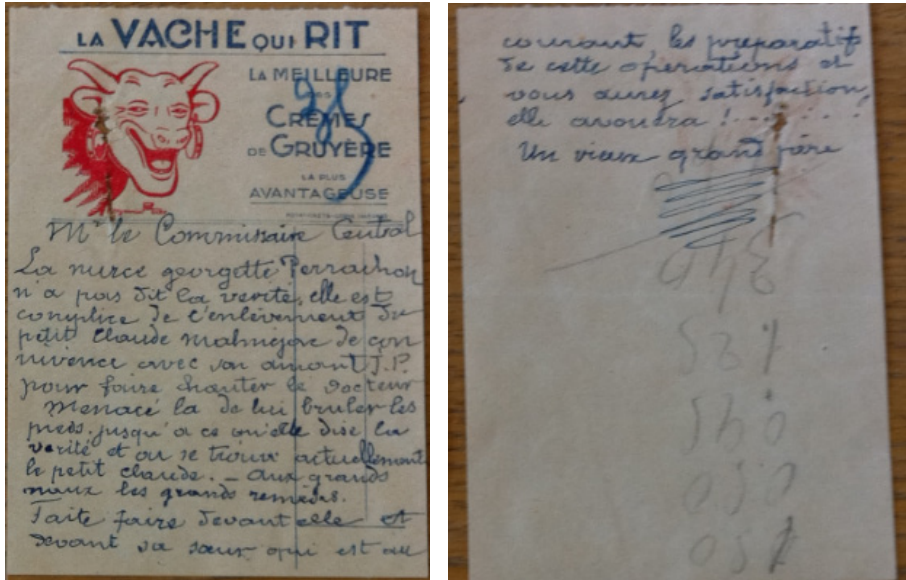 LA VACHE QUI RIT
LA MEILLEURE
DES
CRÈMES
DE GRUYÈRE
LA PLUS
AVANTAGEUSE
Mr le Commissaire Central
La nurce georgette Perrachon
n'a pas dit la verité, elle est
complice de l'enlèvement du
petit Claude malmejac de con
nivence avec son amant J.P.
pour faire chanter le Docteur
Menacé la de lui bruler les
pieds jusqu'a ce qu'elle dise la
verité et ou se trouve actuellement
le petit claude. - aux grands
maux les grands remedes.
Faite faire devant elle et
devant sa sœur qui est au
courant, les preparatifs
de cette operations et
vous aurez satisfaction,
elle avouera ! . . . . .
Un vieux grand père
340
125
0,45
050